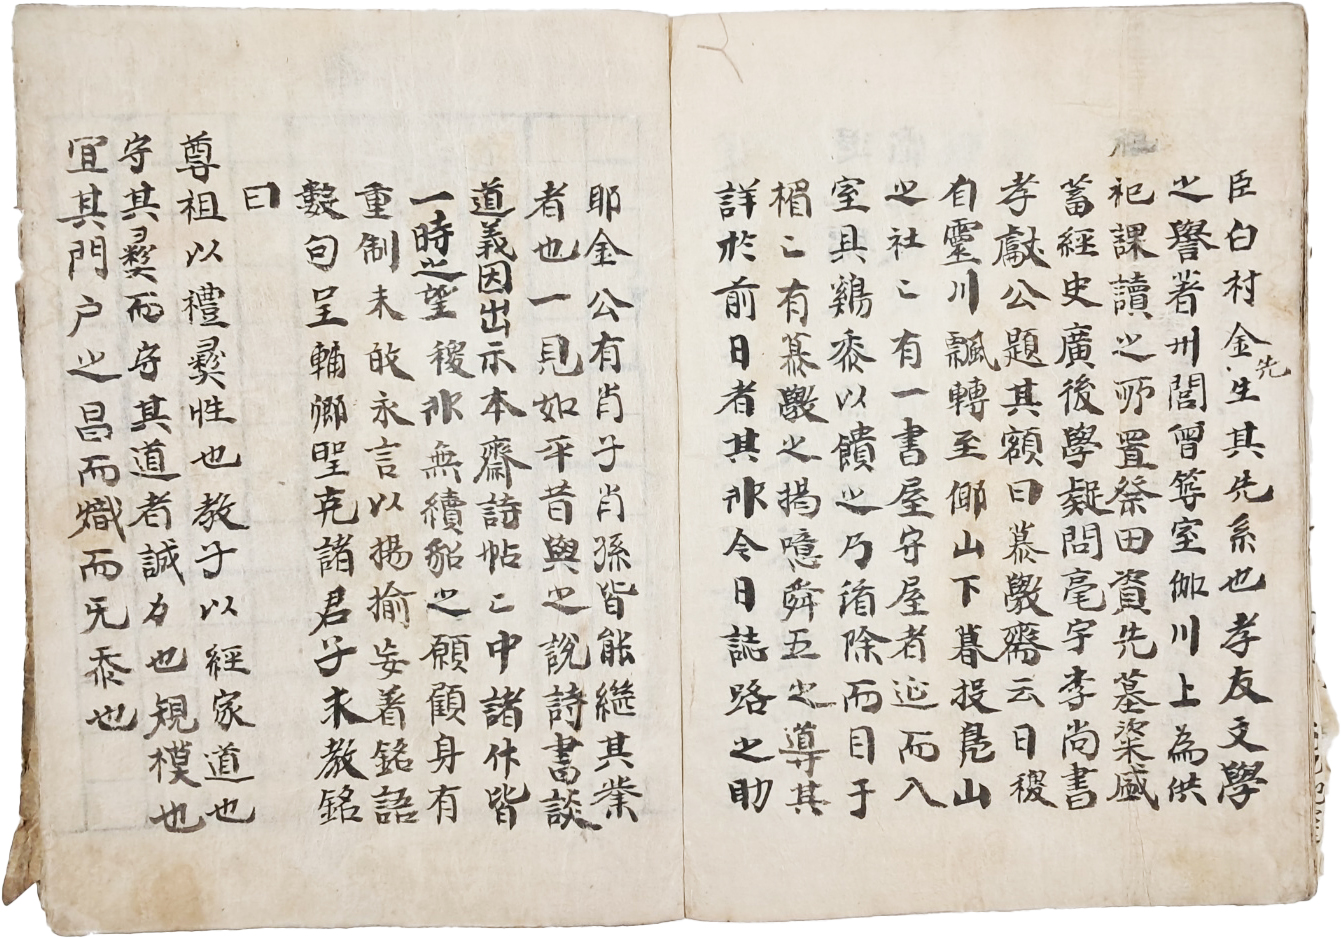 臣白村金先生其先系也孝友文學
之譽著州閭曾築室伽川上為供
祀課讀之所置祭田資先墓粢盛
蓄經史廣後學疑問毫宇李尚書
孝獻公題其額曰慕斆齋云日稷
自靈川飄轉至倻山下暮投鳧山
之社〻有一書屋守屋者延而入
室具鷄黍以饋之乃滫除而目于
楣〻有慕斆之揭噫舜五之導其
詳於前日者其非今日誌路之助
耶金公有肖子肖孫皆能繼其業
者也一見如平昔與之說詩書談
道義因出示本齋詩帖〻中諸作皆
一時之望稷非無續貂之願顧身有
重制未敢永言以揚揄妄着銘語
數句呈輔卿聖克諸君子求教銘
曰
尊祖以禮彝性也教子以經家道也
守其彝而守其道者誠力也規模也
宜其門户之昌而熾而无忝也